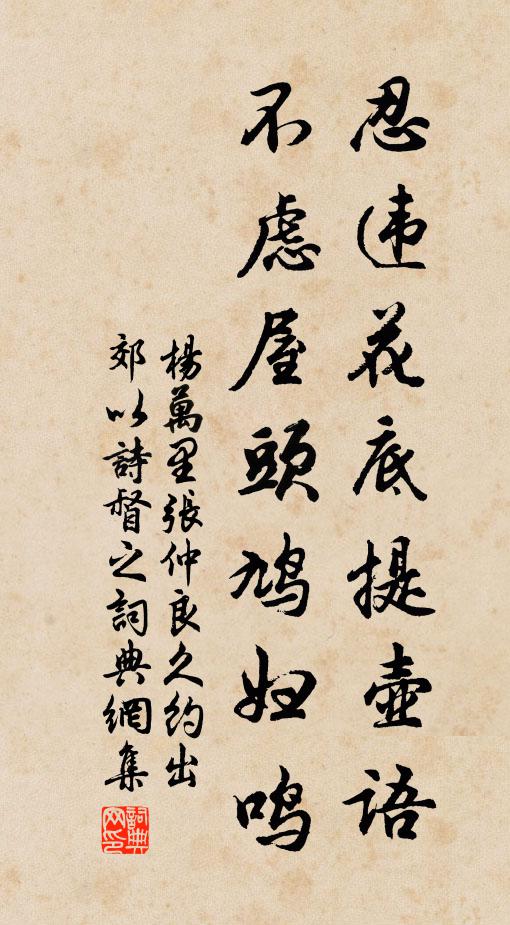 忍违花底提壶语
不虑屋頭鸠妇鸣
楊萬里張仲良久約出
郊以詩督之詞典網集
詞典
网印